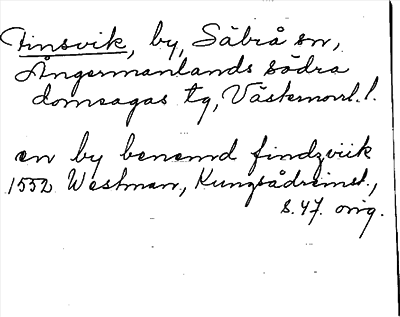 Finsvik, by, Säbrå sn,
Ångermanlands södra
domsagas tg, Västernorrl. l.
en by benemd findzviik
1552 Westman, Kungsådreinst.,
s. 47. orig.